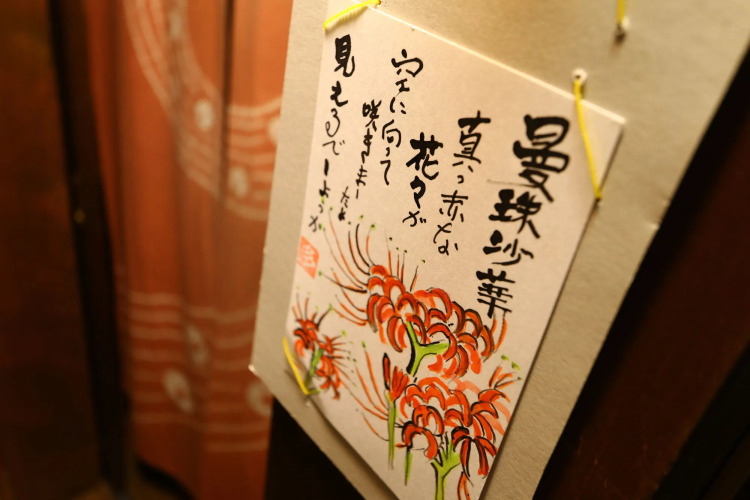 曼珠沙華
真っ赤な
花々が
空に向って
咲きましたね
見えるでしょうか